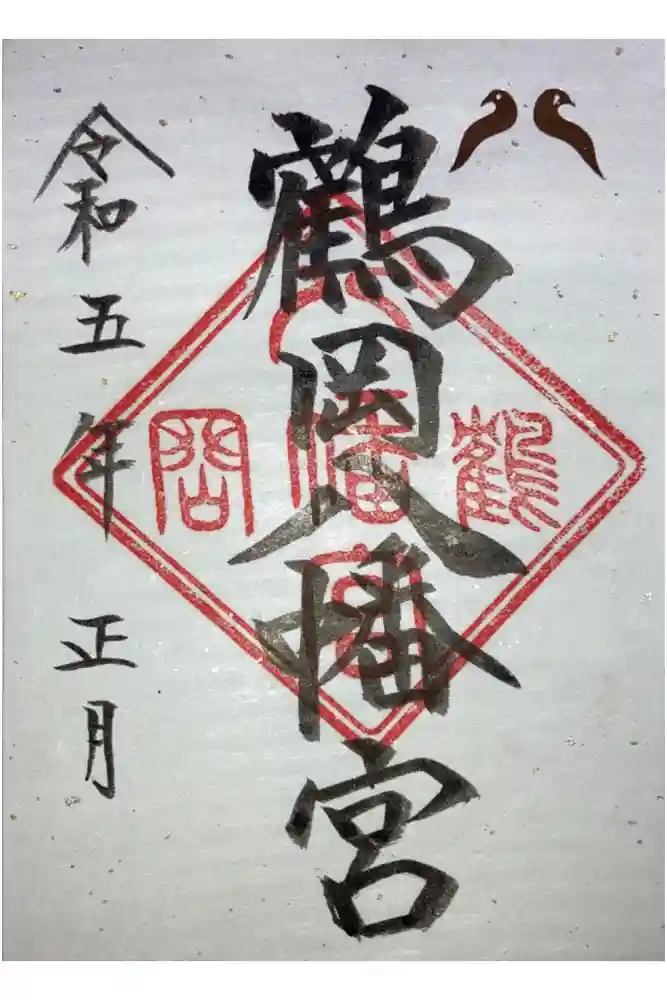 鶴岡八幡宮
鶴
岡
八
幡
宮
令和五年正月